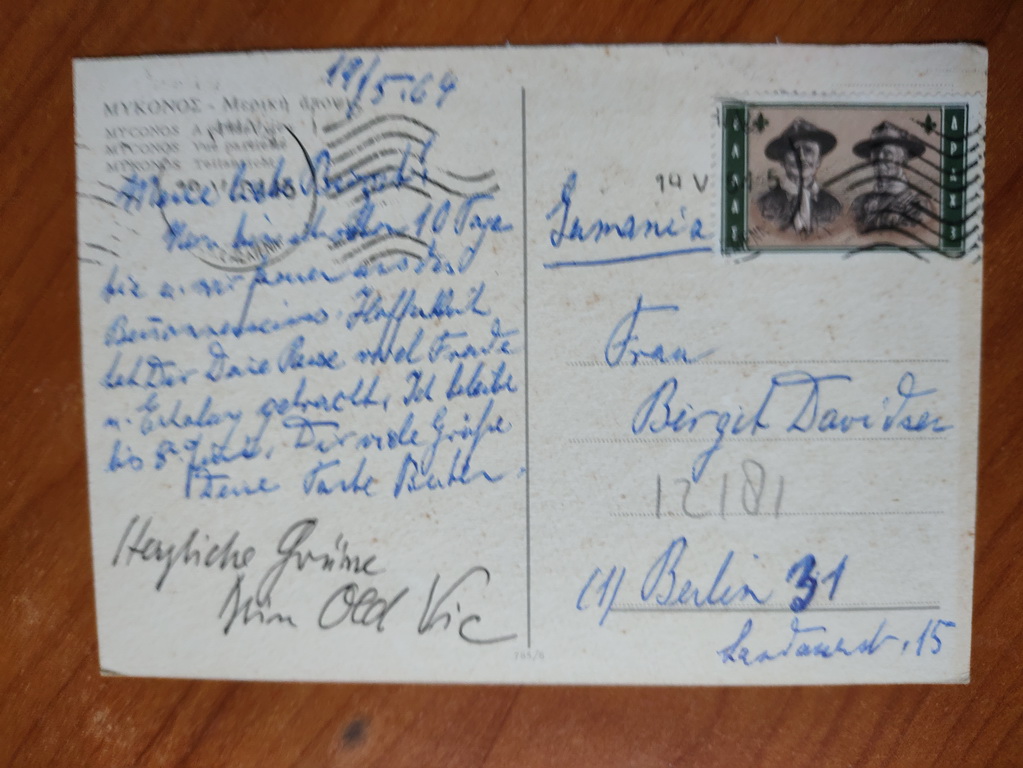 19/5.64
ΜΥΚΟΝΟΣ - Μερική άποψις
MYCONOS A
MYCONOS Vue partielle
MYKONOS Teilansicht
Meine liebe Birgit!
Nun bin ich schon 10 Tage
hier u. wir
Hoffentlich
hat Dir Deine Reise viel Freude
u. Erholung gebracht. Ich bleibe
bis 8. Dir viele Grüße
Deine Tante
Herzliche Grüsse
Dein Old Vic
19 V
ΕΛΛΑΣ
ΔΡΑΧ
Germania
Frau
Birgit Davidsen
12181
(1) Berlin 31
Landauerstr. 15